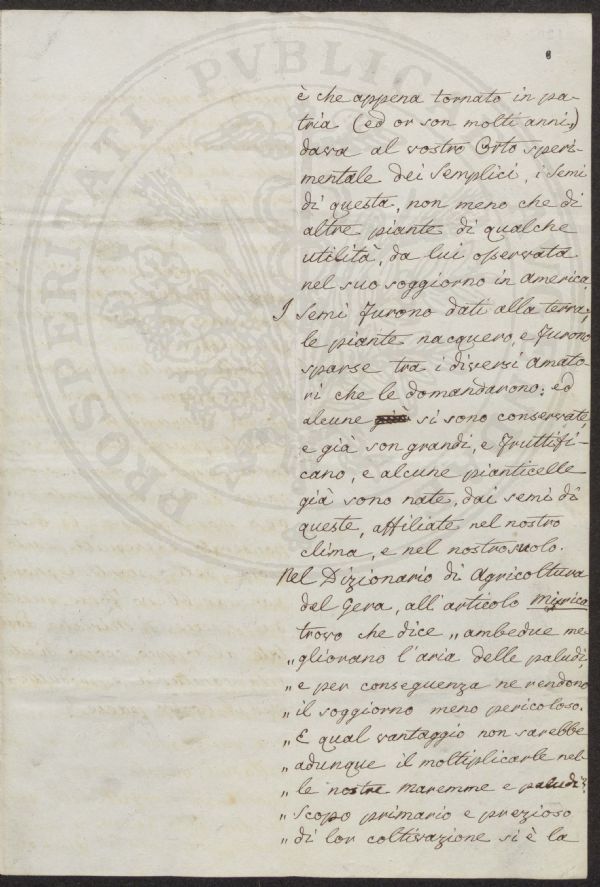 è che appena tornato in pa-
tria (ed or son molti anni,)
dava al vostro Orto speri-
mentale dei Semplici, i semi
di questa, non meno che di
altre piante di qualche
utilità, da lui osservata
nel suo soggiorno in America.
I semi furono dati alla terra,
le piante nacquero, e furono
sparse tra i diversi amato-
ri che le domandarono; ed
alcune si sono conservate,
e già son grandi, e fruttifi-
cano, e alcune pianticelle
già sono nate, dai semi di
queste, affiliate nel nostro
clima, e nel nostro suolo.
Nel Dizionario di Agricoltura
del Gera, all'articolo Mirica
trovo che dice „ ambedue me-
„ gliorano l'aria delle paludi,
„ e per conseguenza ne rendono
„ il soggiorno meno pericoloso.
„ E qual vantaggio non sarebbe
„ adunque il moltiplicarle nel-
„ le nostre maremme e paludi?
„ Scopo primario e prezioso
„ di lor coltivazione si è la
PROSPERITATI PUBLIC